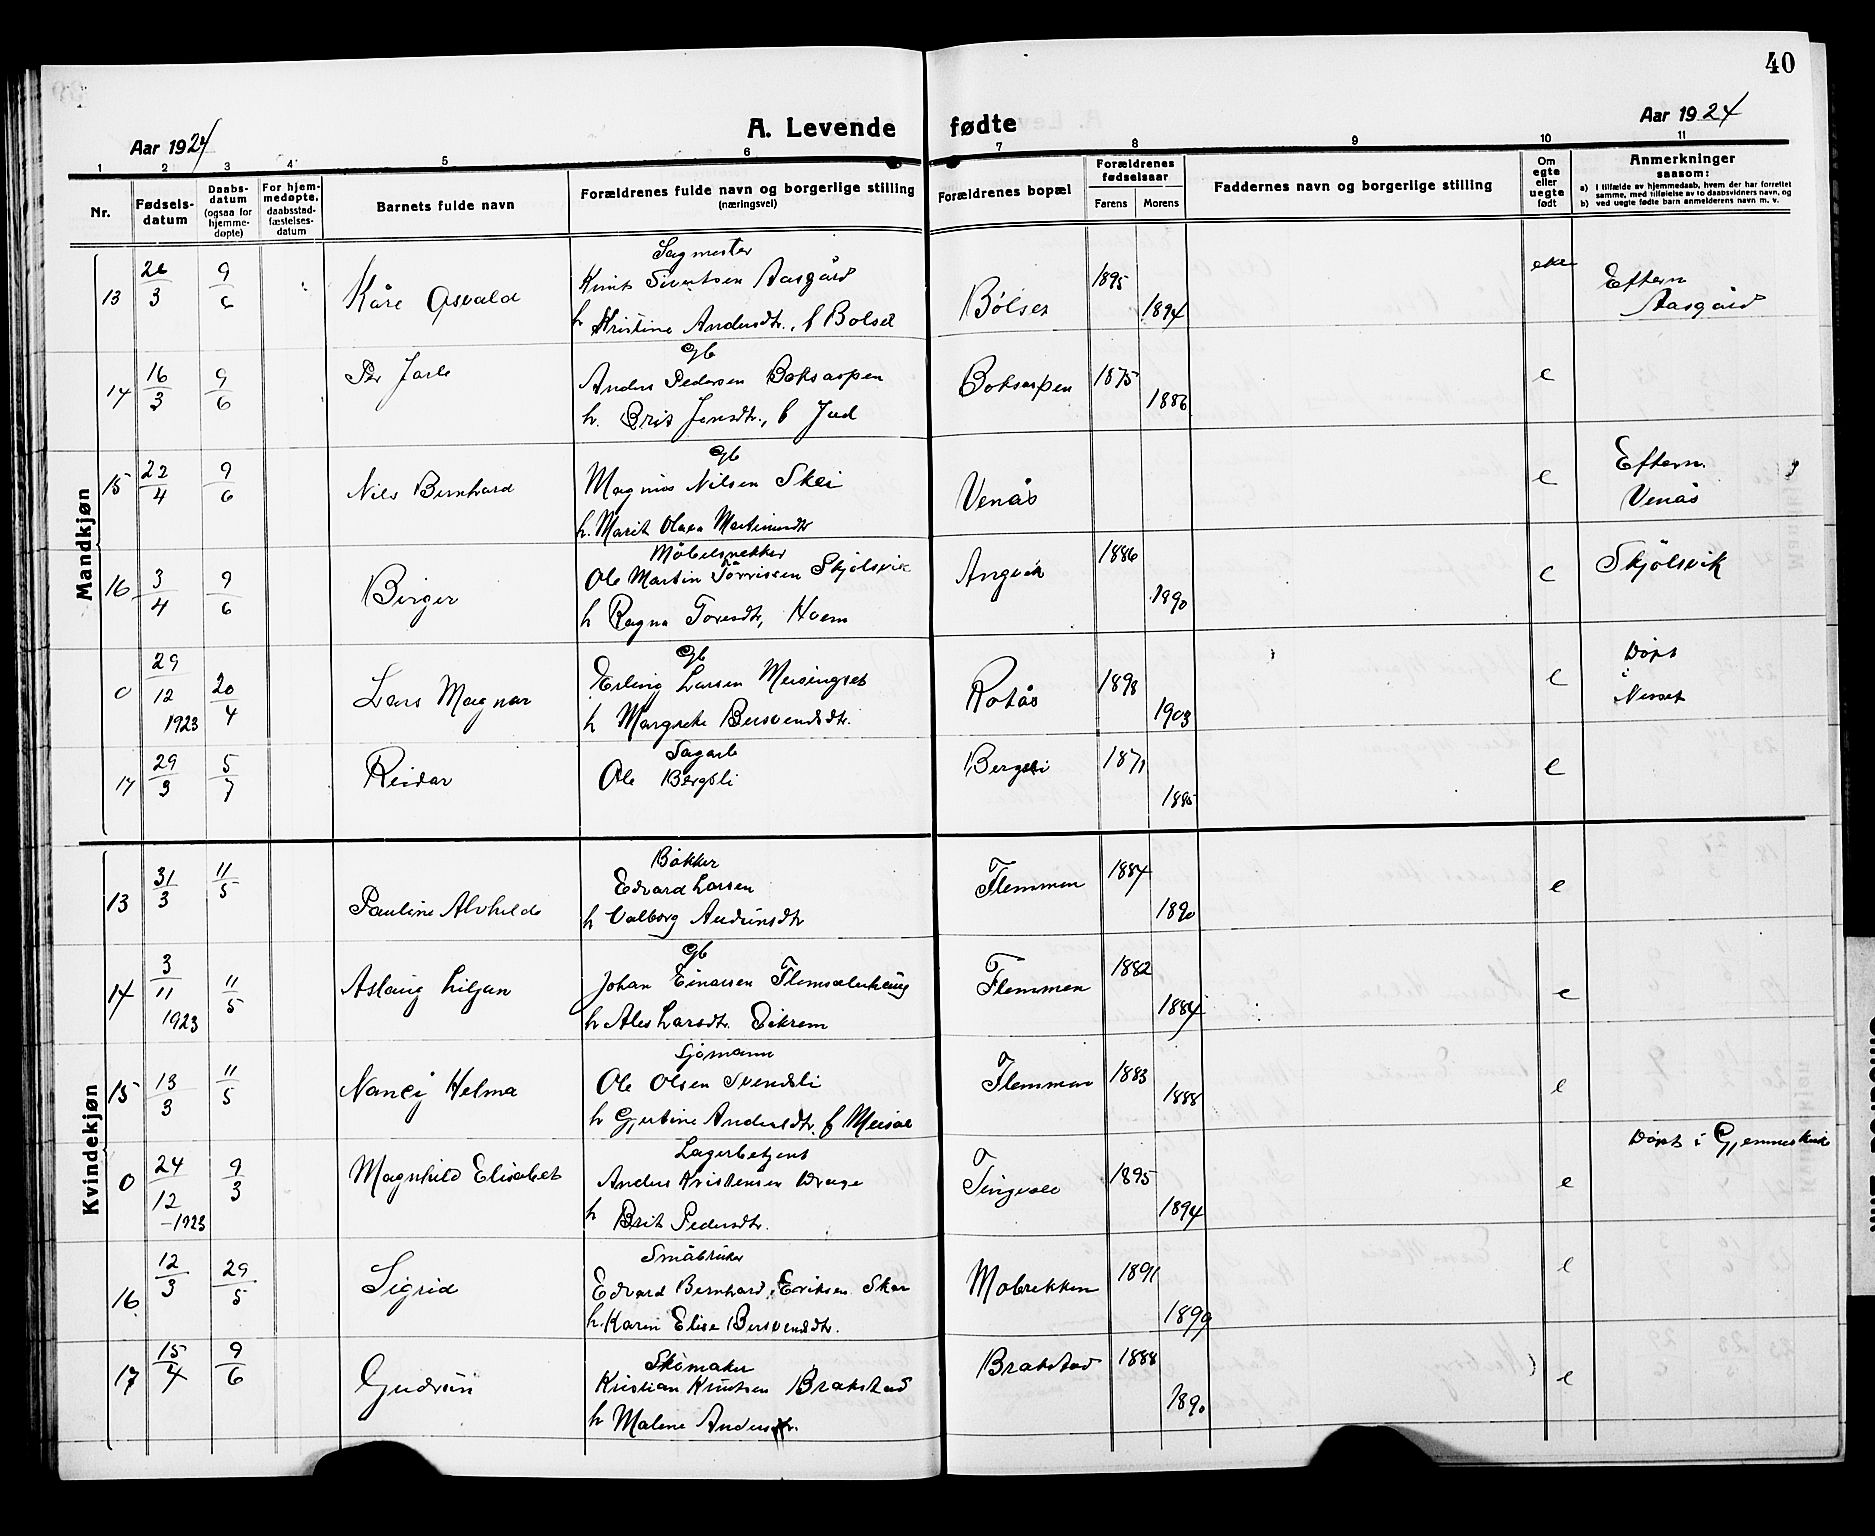 40
A. Levende fødte
Aar 1924
Aar 1924
1 2 3 4 5 6 7 8 9 10 11
Nr.
Fødsels-
datum
Daabs-
datum
(ogsaa for
hjemme-
døpte)
For hjem-
medøpte,
daabsstad-
fæstelses-
datum
Barnets fulde navn
Forældrenes fulde navn og borgerlige stilling
(næringsvei)
Forældrenes bopæl
Forældrenes
fødselsaar
Farens
Morens
Faddernes navn og borgerlige stilling
Om
egte
eller
uegte
født
Anmerkninger
saasom:
a) I tilfælde av hjemmedaab, hvem der har forrettet
samme, med tilføielse av to daabsvidners navn, og
b) ved uegte fødte barn anmelderens navn m. v.
Mandkjøn
13 26/3 9/6
Kåre Osvald
Sagmester
Knut Sivertsen Aasgård
h Kristine Andersdtr., f Bolset
Bølset
1895
1894
ekte
Eftern
Aasgård
14 16/3 9/6
Per Jarle
Gb
Anders Pedersen Boksaspen
h. Brit Jensdtr., f Jud
Boksaspen
1875
1886
e
15 22/4 9/6
Nils Bernhard
Gb
Magnus Nilsen Skei
h. Marit Olava Martinusdtr
Venås
e
Eftern.
Venås
16 3/4 9/6
Birger
Møbelsnekker
Ole Martin Tørrissen Skjølsvik
h Ragna Toresdtr, Hoem
Angvik
1886
1890
e
Skjølsvik
0 29/12 1923 20/4
Lars Magnar
Gb
Erling Larsen Meisingset
h Margrete Bersvendsdtr.
Rotås
1898
1903
e
Døpt
i
Nesset
17 29/3 5/7
Reidar
Sagarb
Ole Bergsli
Bergsli
1871
1885
e
Kvindekjøn
13 31/3 11/5
Pauline Alvhilde
Bøkker
Edvard Larsen
h Valborg Andrinsdtr
Flemmen
1884
1890
e
14 3/11 1923 11/5
Aslaug Liljan
Gb
Johan Einarsen Flemsæterhaug
h Ales Larsdtr. Eikrem
Flemmen
1882
1884
e
15 13/3 11/5
Nancy Helma
Sjømann
Ole Olsen Svendsli
h Gjertine Andersdtr. f Meisal
Flemmen
1883
1888
e
0 24/12 - 1923 9/3
Magnhild Elisabet
Lagerbetjent
Anders Kristensen Drage
h Brit Pedersdtr.
Tingvoll
1895
1894
e
Døpt i Gjemneskirk
16 12/3 29/5
Sigrid
Småbruker
Edvard Bernhard Eriksen Skar
h. Karen Elise Bersvendsdtr.
Mobrekken
1891
1899
e
17 15/4 9/6
Gudrun
Skomaker
Kristian Knutsen Brakstad
h Malene Andersdtr.
Brakstad
1888
1890
e